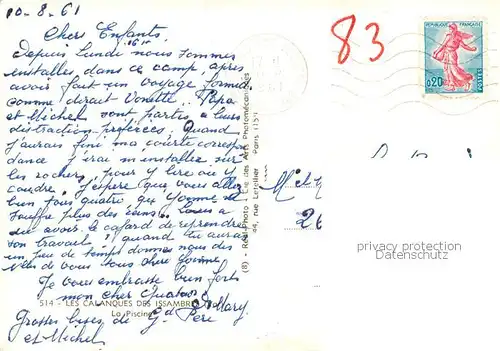 10-8-61
Chers Enfants,
Depuis lundi 16h nous sommes
installés dans ce camp, après
avoir fait un voyage formid.
comme dirait Vonette. Papa
et Michel sont partis à leurs
distraction préférées. Quand
j'aurais fini ma courte correspon
dance j'irai m'installer sur
les rochers, pour y lire ou y
coudre. J'espère que vous allez
bien tous quatre, que Yvonne ne
souffre plus des reins. Louis a
dû avoir le cafard de reprendre
son travail, quand tu auras
un peu de temps donnes nous des
de vous tous chère Yvonne.
Je vous embrasse bien forts
mon cher Quatuor Mary
Grosses bises de Gd Père
et Michel
514 - LES CALANQUES DES ISSAMBRES
La Piscine
(8) - Réal-Photo - Cie des Arts Photomécaniques
44, rue Letellier - Paris (15e)
83
0,20
POSTES
M et
26
privacy protection
Datenschutz